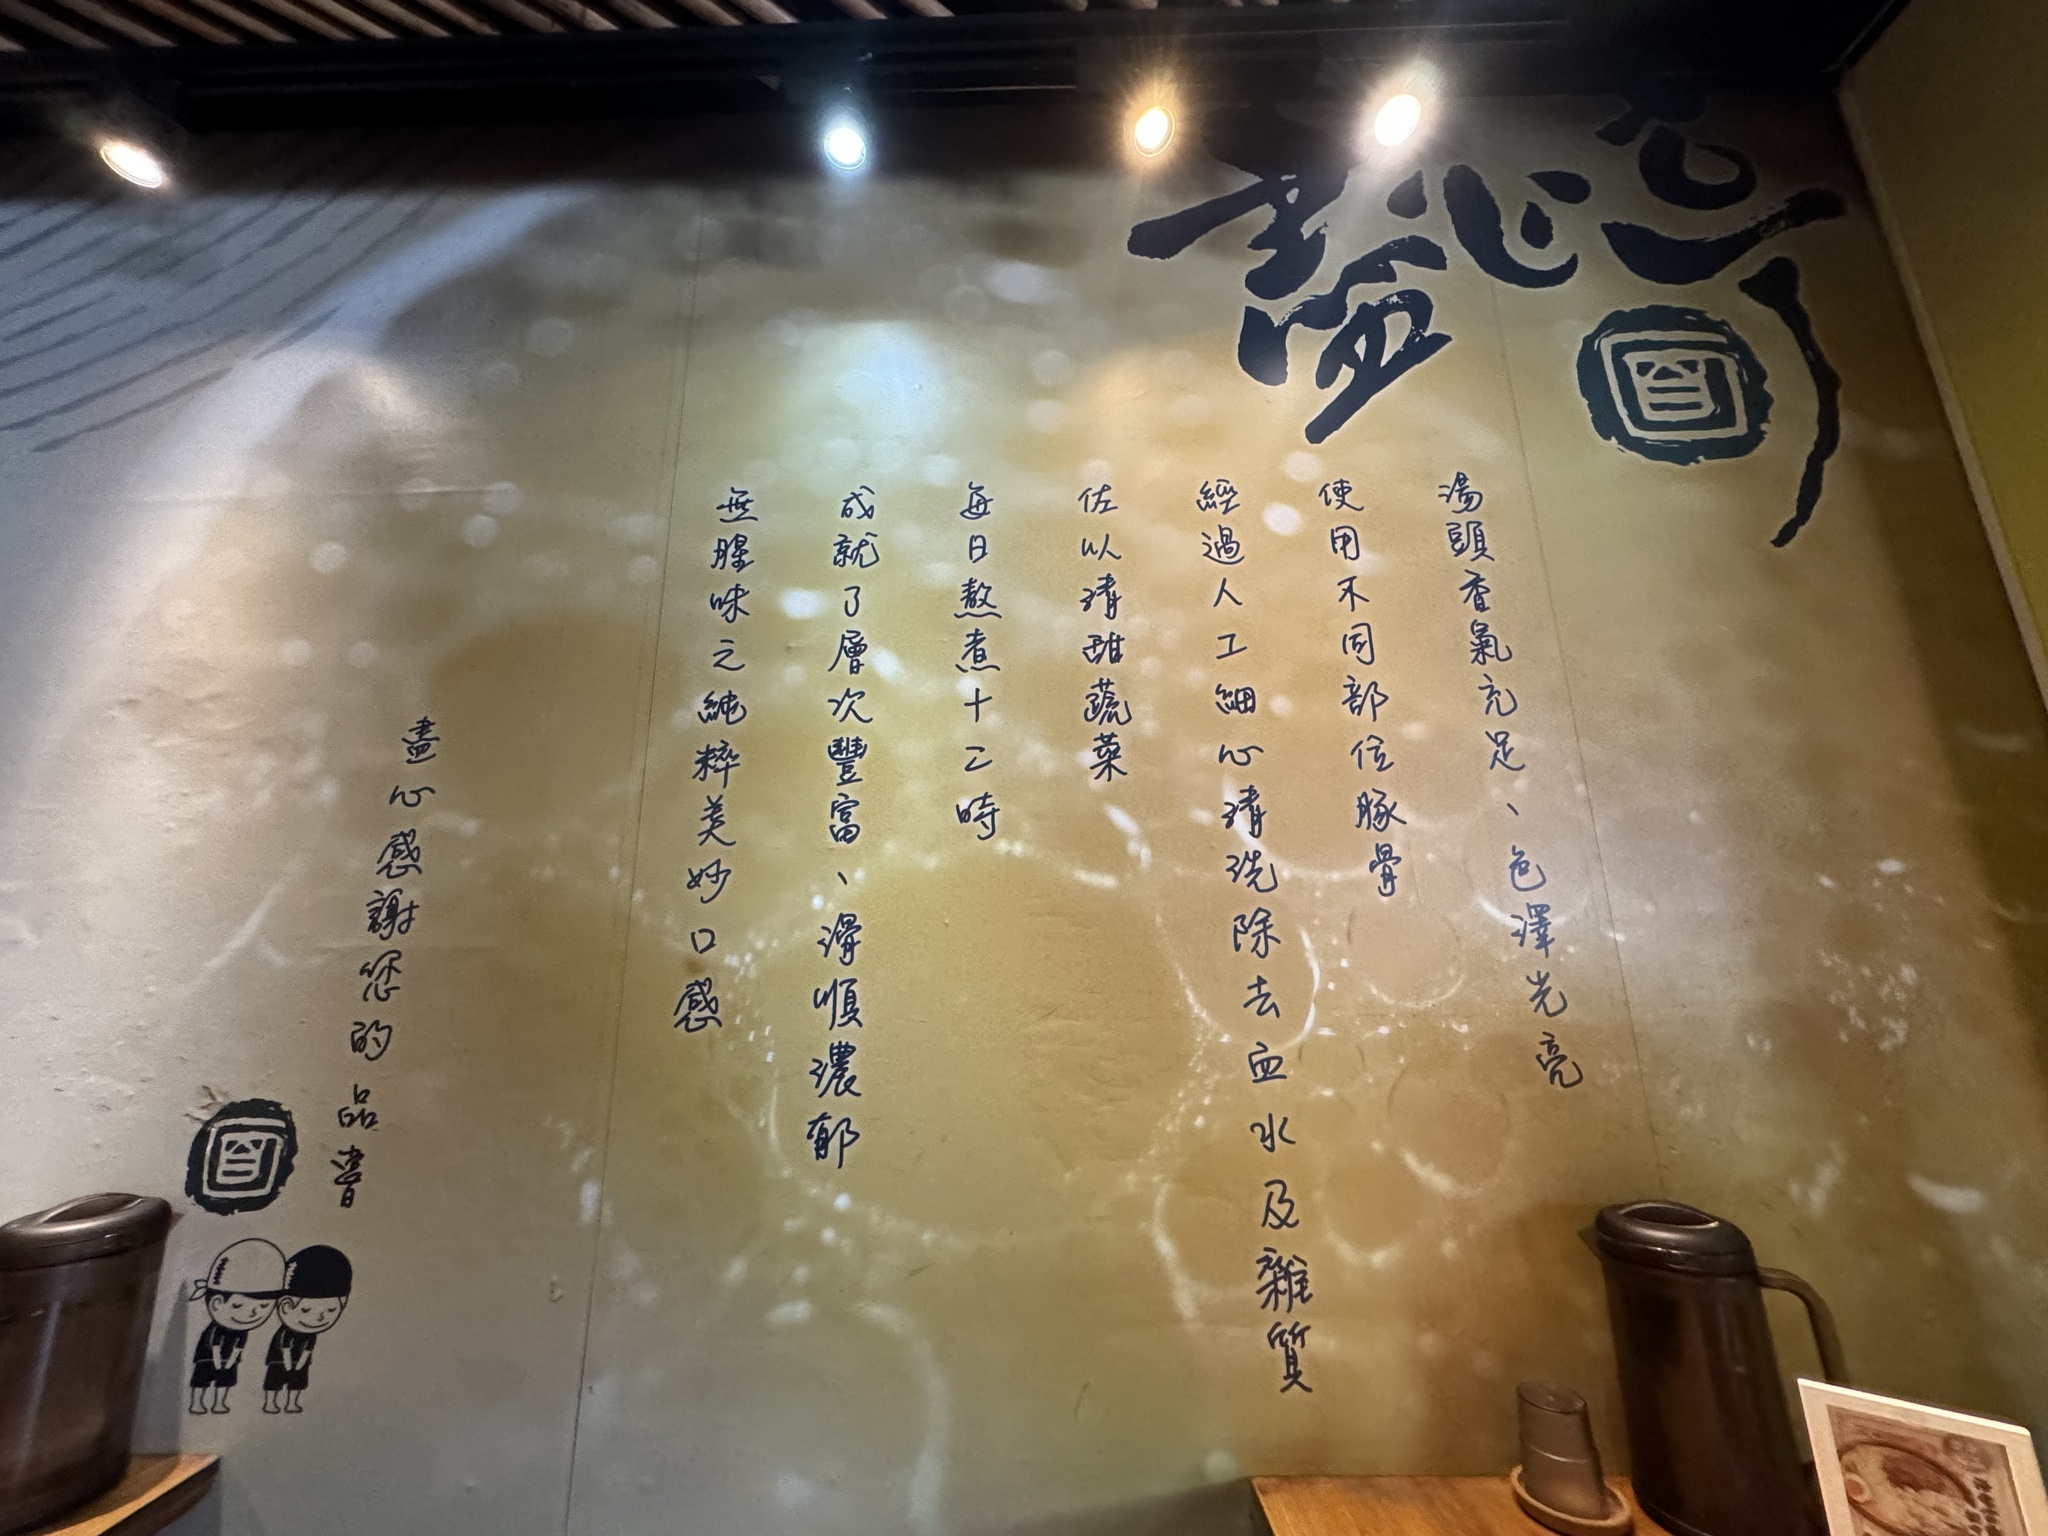 盡心
湯頭香氣充足、色澤光亮
使用不同部位豚骨
經過人工細心清洗除去血水及雜質
佐以清甜蔬菜
每日熬煮十二時
成就了層次豐富、滑順濃郁
無腥味之純粹美妙口感
盡心感謝您的品嘗